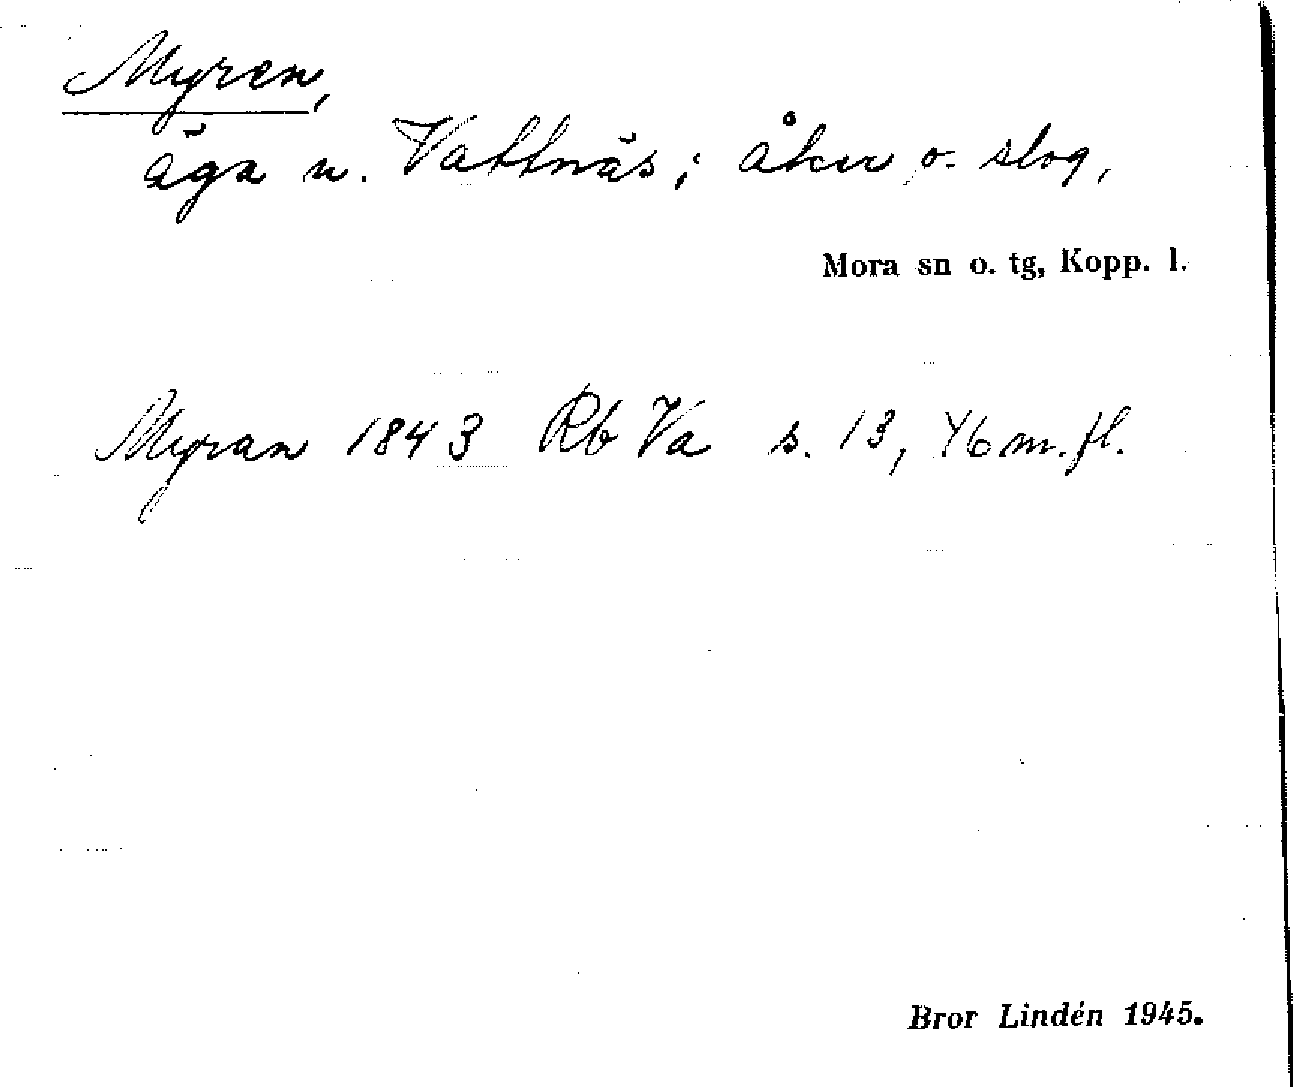 Myren,
äga u. Vattnäs; åker o. slog,
Mora sn o. tg, Kopp. l.
Myran 1843 Rb Va s. 13, 46 m. fl.
Bror Lindén 1945.